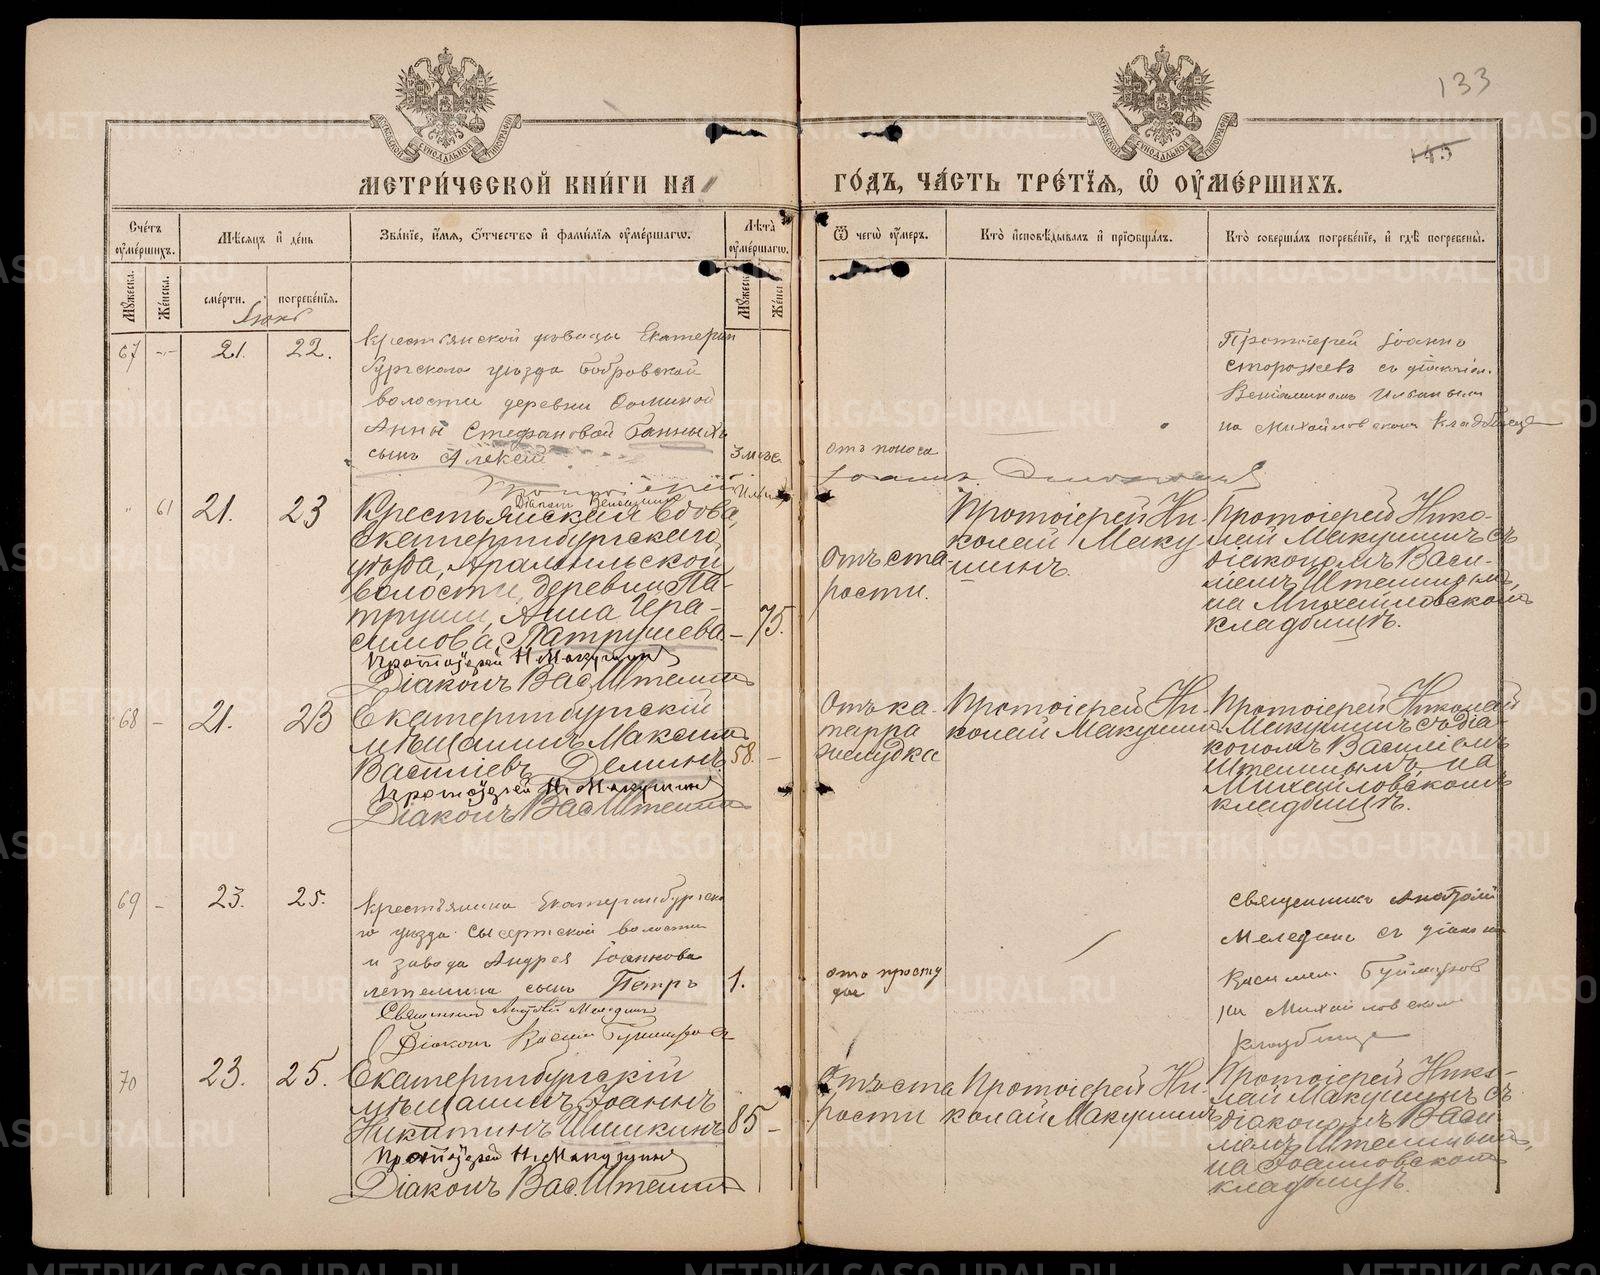 133
145
МЕТРИ́ЧЕСКОЙ КНИ́ГИ НА
ГО́ДЪ, ЧА́СТЬ ТРЕ́ТЇѦ, Ѡ҆ ОУ҆МЕ́РШИХЪ.
Сче́тъ оу҆ме́ршихъ.
Мѣ́сѧцъ и҆ де́нь
Зва́нїе, и҆́мѧ, ѻ҆́тчество и҆ фами́лїѧ оу҆ме́ршагѡ.
Лѣ́та оу҆ме́ршагѡ.
Ѿ чегѡ̀ оу҆́меръ.
Кто̀ и҆сповѣ́дывалъ и҆ прїѻбща́лъ.
Кто̀ соверша́лъ погребе́нїе, и҆ гдѣ̀ погребены̀.
Мꙋ́жеска.
Же́нска.
сме́рти.
погребе́нїѧ.
67
21.
22.
Крестьянской дѣвицы Екатерин
бургскаго уѣзда Бобровской
волости деревни
Анны Стефановой Банныхъ
сынъ Алексѣй
3 мѣс.
отъ поноса
Протоіерей Іоаннъ
Сторожевъ съ діакон.
Веніаминомъ
на Михайловскомъ Кладбище
61
21.
23
Крестьянская вдова,
Екатеринбургскаго
уѣзда, Арамильской
волости, деревни Па-
труши, Анна Гера-
симова, Патрушева
75.
Протоіерей Н. Макушинъ
Діаконъ Вас. Штенинъ
Отъ ста-
рости.
Протоіерей Ни-
колай Маку
шинъ.
Протоіерей Нико-
лай Макушинъ съ
діакономъ Васи-
ліемъ Штенинымъ,
на Михайловскомъ
кладбищѣ.
68
21.
23
Екатеринбургскій
мѣщанинъ Максимъ
Василіевъ Деминъ
58.
Протоіерей Н. Макушинъ
Діаконъ Вас. Штенинъ
Отъ ка-
тарра
желудка
Протоіерей Ни-
колай Макушинъ
Протоіерей Николай
Макушинъ съ діа-
кономъ Василіемъ
Штенинымъ, на
Михайловскомъ
кладбищѣ.
69
23.
25.
Крестьянина Екатеринбургска
го уѣзда Сысертской волости
и завода Андрея Іоаннова
Летемина сынъ Петръ
1.
Священникъ Анатолій Мелединъ
Діаконъ Василій
отъ просту
ды
Священникъ Анатолій
Меледінъ съ діакон
Василіем.
на Михайловском
кладбище
70
23.
25.
Екатеринбургскій
мѣщанинъ Іоаннъ
Никитинъ Шишкинъ
85
Протоіерей Н. Макушинъ
Діаконъ Вас. Штенинъ
Отъ ста
рости
Протоіерей Ни-
колай Макушинъ
Протоіерей Нико-
лай Макушинъ съ
діакономъ Васи-
ліемъ Штенинымъ,
на Іоанновскомъ
кладбищѣ.
METRIKI.GASO-URAL.RU